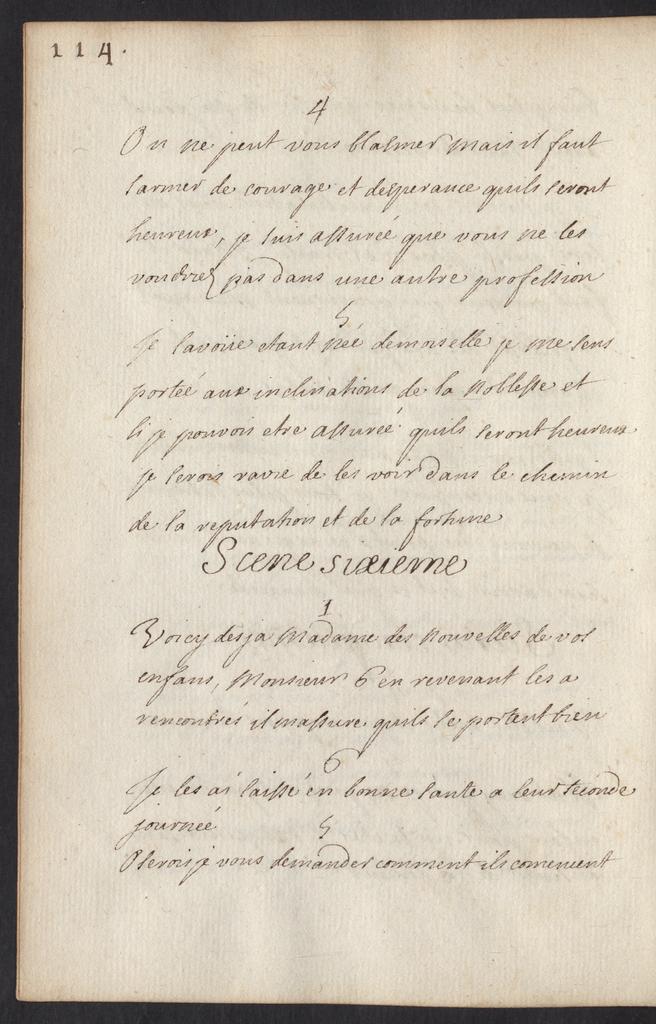 114.
4
On ne peut vous blasmer mais il faut
sarmer de courage et desperance quils seront
heureux, je suis assuréé que vous ne les
voudriez pas dans une autre profession
5
Je lavoüe etant néé demoiselle je me sens
portéé aux inclinations de la noblesse et
si je pouvois etre assuréé quils seront heureux
je serois ravie de les voir dans le chemin
de la reputation et de la fortune
Scene sixieme
1
Voicy desja Madame des nouvelles de vos
enfans, Monsieur 6 en revenant les a
rencontrés il massure quils se portent bien
6
Je les ai laissé en bonne sante a leur seconde
journéé
5
Oserois je vous demander comment ils comencent